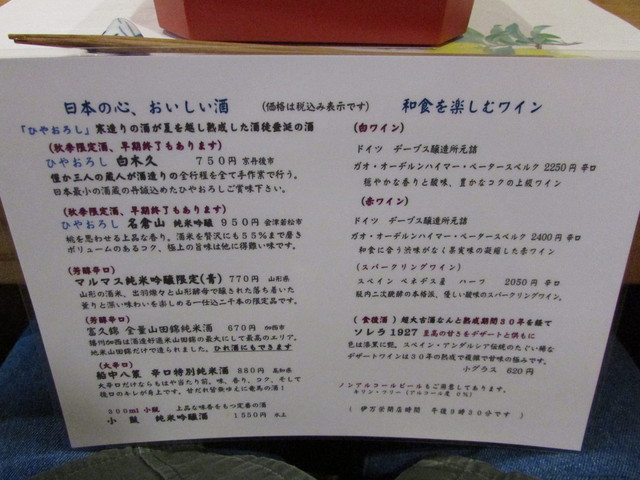 日本の心、おいしい酒　(価格は税込み表示です)
「ひやおろし」寒造りの酒が夏を越し熟成した酒徒垂涎の酒
(秋季限定酒、早期終了もあります)
ひやおろし 白木久　750円 京丹後市
僅か三人の蔵人が酒造りの全行程を全て手作業で行う。
日本最小の酒蔵の丹誠込めたひやおろしご賞味下さい。
(秋季限定酒、早期終了もあります)
ひやおろし 名倉山 純米吟醸 950円 会津若松市
桃を思わせる上品な香り。酒米を贅沢にも55%まで磨き
ボリュームのあるコク、極上の旨味は他に得難い味です。
(芳醇辛口)
マルマス純米吟醸限定(青) 770円 山形県
山形の酒米、出羽燦々と山形酵母で醸された落ち着いた
薫りと深い味わいを楽しめる一仕込二千本の限定品です。
(芳醇辛口)
富久錦 全量山田錦純米酒　670円 加西市
播州加西は酒造好適米山田錦の最大にして最高のエリア。
地米山田錦だけで造られました。ひれ酒にもできます
(大辛口)
船中八策 辛口特別純米酒 880円 高知県
大辛口だけならもはや当たり前。味、香り、コク、そして
後口のキレが身上です。甘だれ皆無ゆえに竜馬の酒!
300ml 小瓶　上品な味香をもつ定番の酒
小鼓　純米吟醸酒　1550円 氷上
和食を楽しむワイン
(白ワイン)
ドイツ　デーブス醸造所元詰
ガオ・オーデルンハイマー・ペータースベルク 2250円 辛口
穏やかな香りと酸味、豊かなコクの上級ワイン
(赤ワイン)
ドイツ　デーブス醸造所元詰
ガオ・オーデルンハイマー・ペータースベルク 2400円 辛口
和食に合う渋味がなく果実味の凝縮した赤ワイン
(スパークリングワイン)
スペイン ペネデス産　ハーフ　2050円 辛口
瓶内二次醗酵の本格派、優しい酸味のスパークリングワイン。
(食後酒) 超大古酒なんと熟成期間30年を経て
ソレラ1927 至高の甘さをデザートと供もに
色は漆黒に艶。スペイン・アンダルシア伝統のたぐい稀な
デザートワインは30年の熟成で複雑で甘味の極みです。
小グラス 620円
ノンアルコールビールもご用意してあります。
キリン・フリー (アルコール度 0%)
( 伊万里閉店時間　午後9時30分です )